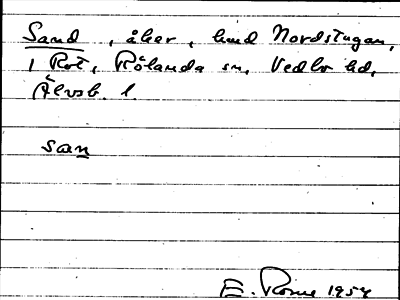 Sand, åker, hmd Nordstugan,
1 Rot, Rölanda sn, Vedbo hd,
Älvsb. l.
san
E. Rome 1954